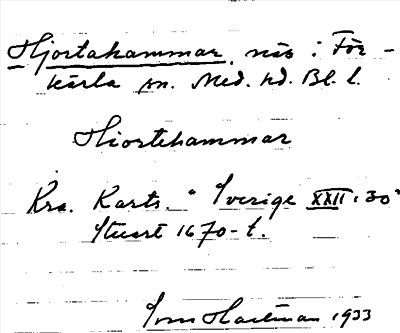 Hjortahammar, näs i För-
kärla sn. Med. hd. Bl. l.
Hiortehammar
Kra. Karts. "Sverige XXII:30"
Stuart 1670-t.
Hartman 1933